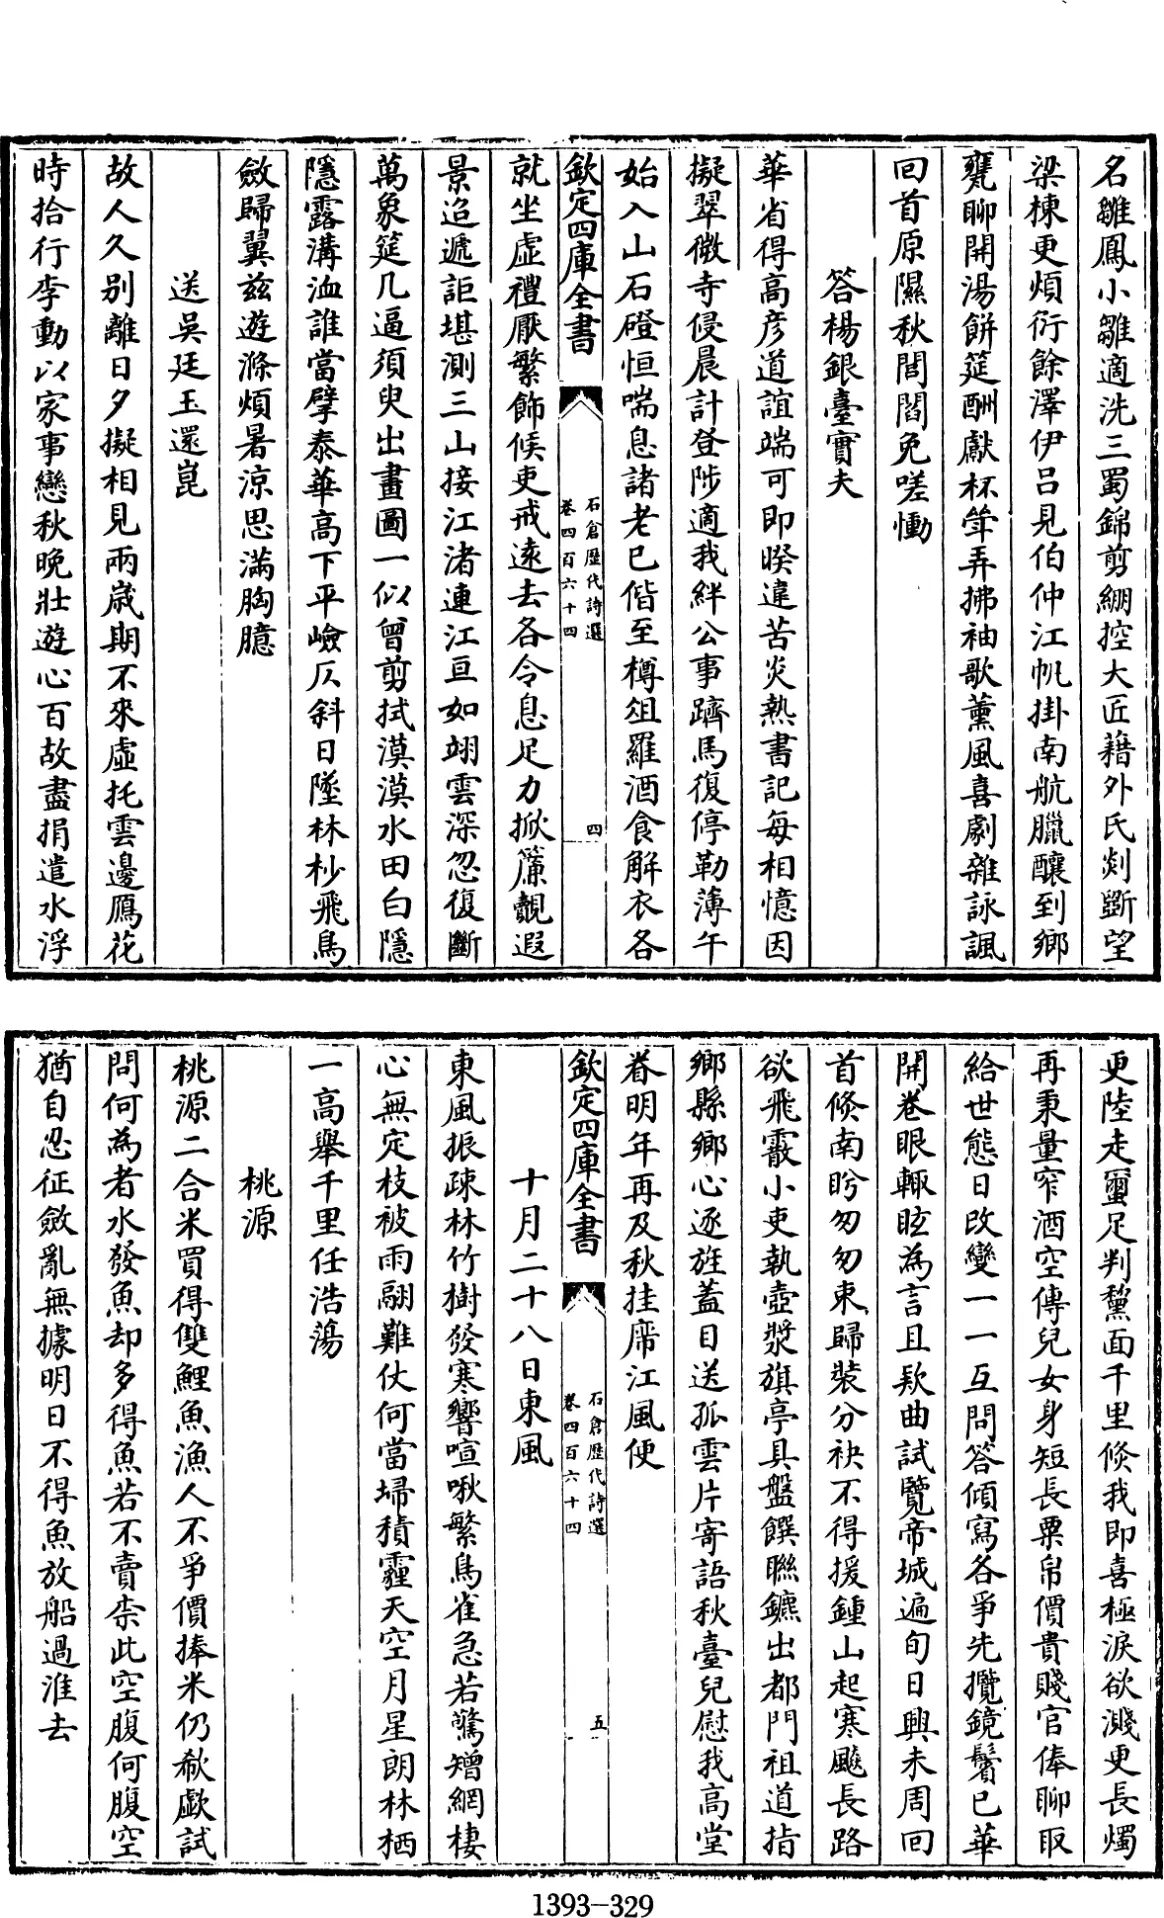 名雛鳳小雛適洗三蜀錦剪綳控大匠藉外氏剡斲望
梁棟更煩衍餘澤伊吕見伯仲江帆掛南航臘釀到鄉
甕聊開湯餅筵酬獻杯斝弄拂袖歌薰風喜劇雜詠諷
回首原隰秋閭閻免嗟慟
答楊銀臺實夫
華省得高彦道誼端可即睽違苦炎熱書記每相憶因
擬翠微寺侵晨計登陟適我絆公事躋馬復停勒薄午
始入山石磴恒喘息諸老已偕至樽俎羅酒食解衣各
欽定四庫全書
石倉歷代詩選
卷四百六十四
四
就坐虛禮厭繁飾候吏戒遠去各令息足力掀簾覩遐
景迢遞詎堪測三山接江渚連江亘如翊雲深忽復斷
萬象筵几逼須臾出畫圖一似曾剪拭漠漠水田白隱
隱露溝洫誰當擘泰華高下平嶮仄斜日墜林杪飛鳥
斂歸翼茲遊滌煩暑涼思滿胸臆
送吳廷玉還崑
故人久别離日夕擬相見兩歲期不來虛托雲邊鴈花
時拾行李動以家事戀秋晚壯遊心百故盡捐遣水浮
更陸走璽足判黧面千里倐我即喜極淚欲濺更長燭
再秉量窄酒空傳兒女身短長粟帛價貴賤官俸聊取
給世態日改變一一互問答傾寫各爭先攬鏡鬢已華
開卷眼輙眩為言且欵曲試覽帝城遍旬日興未周回
首倐南盻匆匆東歸裝分袂不得援鍾山起寒飈長路
欲飛霰小吏執壺漿旗亭具盤饌聯鑣出都門祖道指
鄉縣鄉心逐旌蓋目送孤雲片寄語秋臺兒慰我高堂
眷明年再及秋挂席江風便
欽定四庫全書
石倉歷代詩選
卷四百六十四
五
十月二十八日東風
東風振疎林竹樹發寒響喧啾繁鳥雀急若驚矰網棲
心無定枝被雨翮難仗何當埽積霾天空月星朗林栖
一高舉千里任浩蕩
桃源
桃源二合米買得雙鯉魚漁人不爭價捧米仍欷歔試
問何為者水發魚却多得魚若不賣柰此空腹何腹空
猶自忍征斂亂無據明日不得魚放船過淮去
1393-329